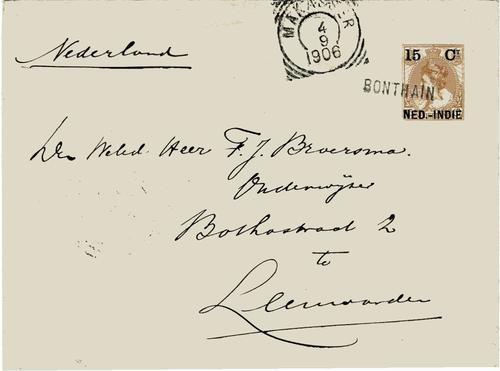 MAKASSER
4
9
1906
15 Ct
BONTHAIN
NED.-INDIË
Nederland
Den Weled. Heer F. J. Broersma.
Onderwijzer
Bothastraat 2
te
Leeuwarden